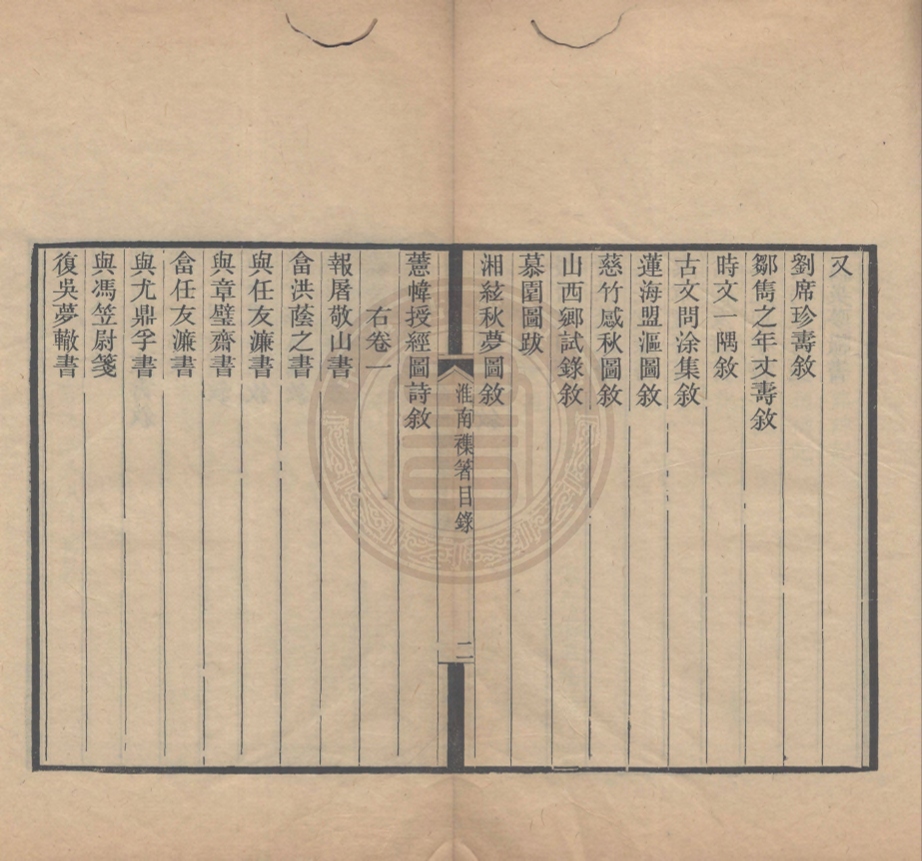 又
劉席珍壽敘
鄒雋之年丈壽敘
時文一隅敘
古文問涂集敘
蓮海盟漚圖敘
慈竹感秋圖敘
山西鄉試錄敘
慕園圖跋
湘絃秋夢圖敘
淮南襍箸目錄
二
蕙幃授經圖詩敘
右卷一
報屠敬山書
畣洪蔭之書
與任友濂書
與章璧齋書
畣任友濂書
與尤鼎孚書
與馮笠尉箋
復吳夢轍書